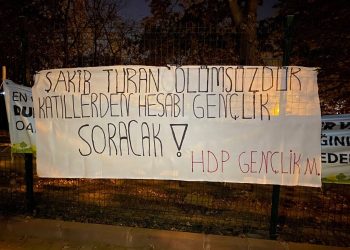 ŞAKİR TURAN ÖLÜMSÜZDÜR
KATİLLERDEN HESABI GENÇLİK
SORACAK!
HDP GENÇLİK M.
EN
DU
OA
EDE